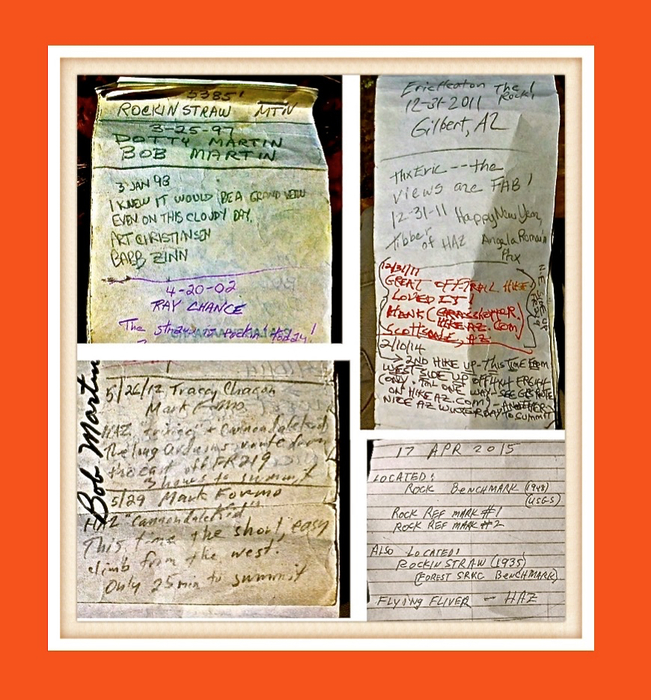 5385'
ROCKINSTRAW MTN
3-25-97
DOTTY MARTIN
BOB MARTIN
3 JAN 98
I KNEW IT WOULD BE A GRAND VIEW
EVEN ON THIS CLOUDY DAY.
ART CHRISTIANSEN
BARB ZINN
4-20-02
RAY CHANCE
The straw is rockin today!
Eric The
12-31-2011 Rock!
Gilbert, AZ
Thx Eric --- the
views are FAB!
12-31-11 Happy New Year
Tibber
of HAZ Angela Roman
Phx
12/31/11
GREAT OFFTRAIL HIKE
LOVED IT!
HANK (GRASSHOPPER
HIKEAZ.COM)
SCOTTSDALE, AZ
2/10/14
2ND HIKE UP-THIS TIME FROM
WEST SIDE UP OFF HWY
ONE WAY-SEE GPS ROUTE
ON HIKEAZ.COM)-ANOTHER
NICE AZ WINTER DAY TO SUMMIT
Bob Martin
5/26/12 Tracey Chacon
Mark
HAZ & Cannondalekid
The long arduous route from
the east off FR219
3 hours to summit
5/29 Mark
HAZ "Cannondalekid"
This time the short, easy
climb from the west.
Only 25 min to summit
17 APR 2015
LOCATED:
ROCK BENCHMARK (1948)
(USGS)
ROCK REF MARK #1
ROCK REF MARK #2
ALSO LOCATED:
ROCKINSTRAW (1935)
(FOREST SRVC BENCHMARK)
FLYING FLIVER - HAZ